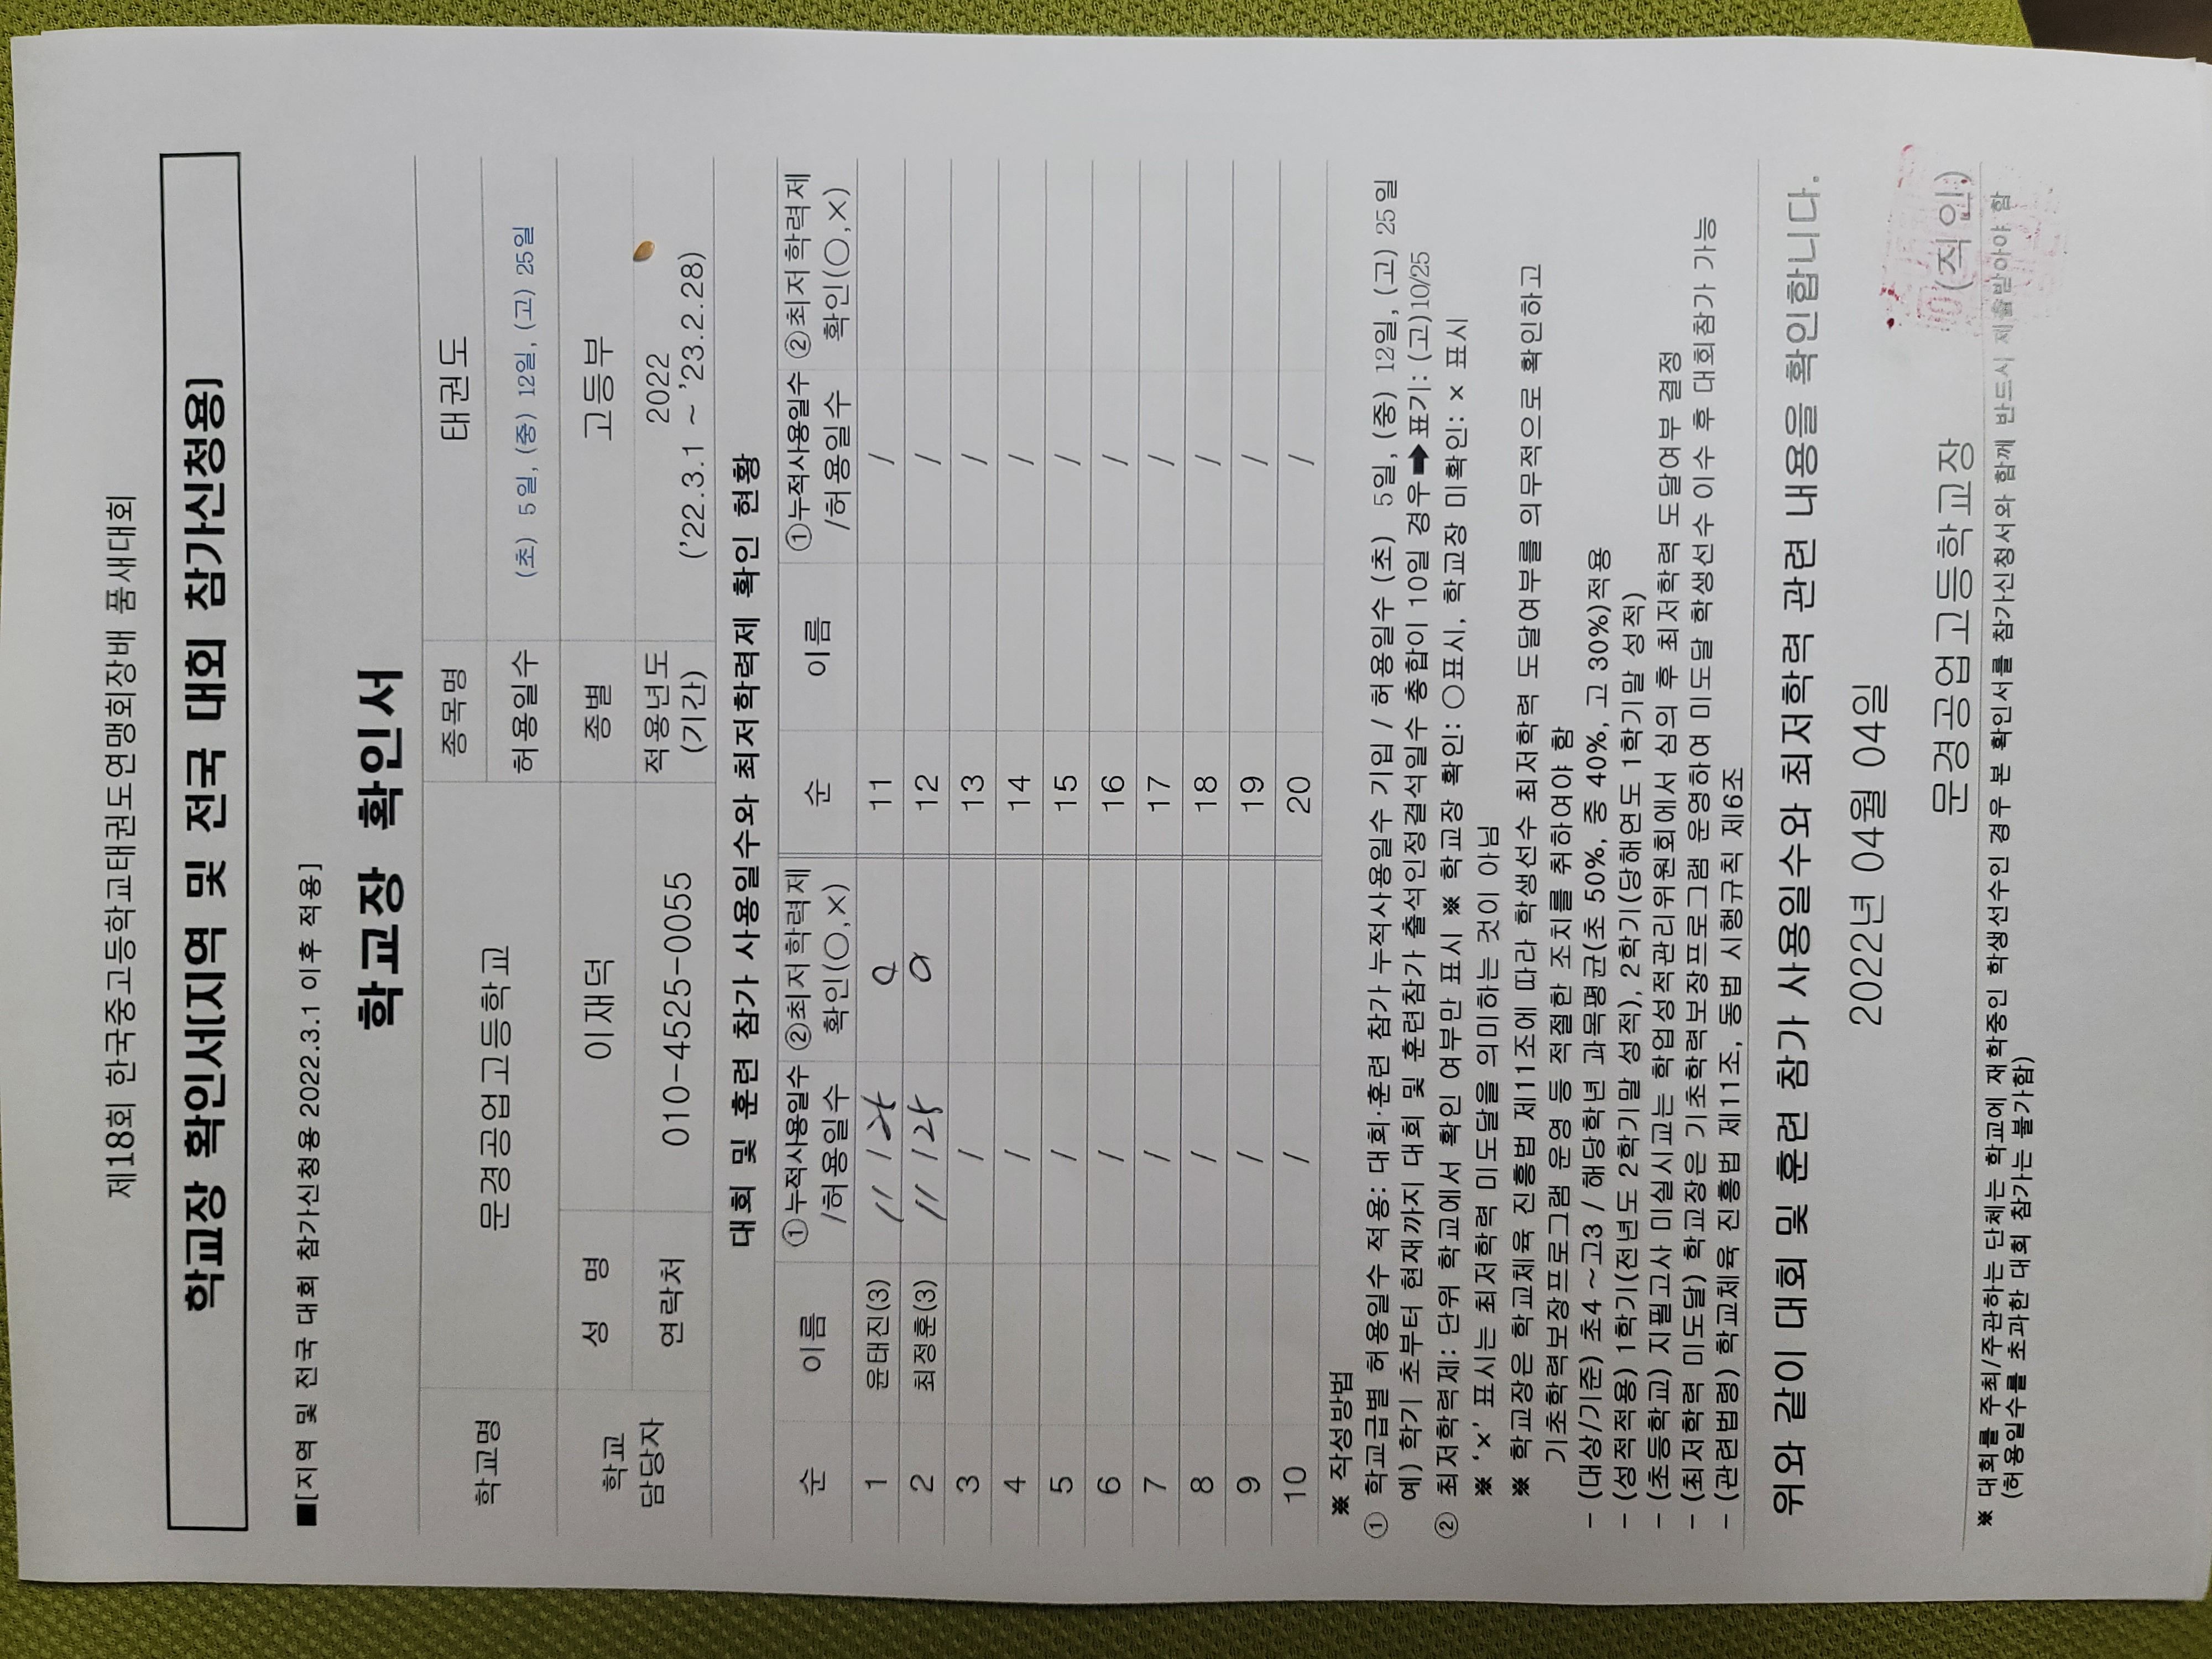 제18회 한국중고등학교태권도연맹회장배 품새대회
학교장 확인서[지역 및 전국 대회 참가신청용]
■[지역 및 전국 대회 참가신청용 2022.3.1 이후 적용]
학교장 확인서
학교명 문경공업고등학교 종목명 태권도
허용일수 (초) 5일, (중) 12일, (고) 25일
학교 담당자 성 명 이재덕 종별 고등부
연락처 010-4525-0055 적용년도 (기간) 2022 ('22.3.1 ~ '23.2.28)
대회 및 훈련 참가 사용일수와 최저학력제 확인 현황
순 이름 ①누적사용일수 /허용일수 ②최저학력제 확인(○,×) 순 이름 ①누적사용일수 /허용일수 ②최저학력제 확인(○,×)
1 윤태진(3) 11 / 25 O 11 /
2 최정훈(3) 11 / 25 O 12 /
3 / 13 /
4 / 14 /
5 / 15 /
6 / 16 /
7 / 17 /
8 / 18 /
9 / 19 /
10 / 20 /
※ 작성방법
① 학교급별 허용일수 적용: 대회·훈련 참가 누적사용일수 기입 / 허용일수 (초) 5일, (중) 12일, (고) 25일
예) 학기 초부터 현재까지 대회 및 훈련참가 출석인정결석일수 총합이 10일 경우➡표기: (고)10/25
② 최저학력제: 단위 학교에서 확인 여부만 표시 ※ 학교장 확인: ○표시, 학교장 미확인: × 표시
※ '×' 표시는 최저학력 미도달을 의미하는 것이 아님
※ 학교장은 학교체육 진흥법 제11조에 따라 학생선수 최저학력 도달여부를 의무적으로 확인하고
기초학력보장프로그램 운영 등 적절한 조치를 취하여야 함
- (대상/기준) 초4 ~고3 / 해당학년 과목평균(초 50%, 중 40%, 고 30%)적용
- (성적적용) 1학기(전년도 2학기말 성적), 2학기(당해연도 1학기말 성적)
- (초등학교) 지필고사 미실시교는 학업성적관리위원회에서 심의 후 최저학력 도달여부 결정
- (최저학력 미도달) 학교장은 기초학력보장프로그램 운영하여 미도달 학생선수 이수 후 대회참가 가능
- (관련법령) 학교체육 진흥법 제11조, 동법 시행규칙 제6조
위와 같이 대회 및 훈련 참가 사용일수와 최저학력 관련 내용을 확인합니다.
2022년 04월 04일
문경공업고등학교장 (직인)
※ 대회를 주최/주관하는 단체는 학교에 재학중인 학생선수인 경우 본 확인서를 참가신청서와 함께 반드시 제출받아야 함
(허용일수를 초과한 대회 참가는 불가함)